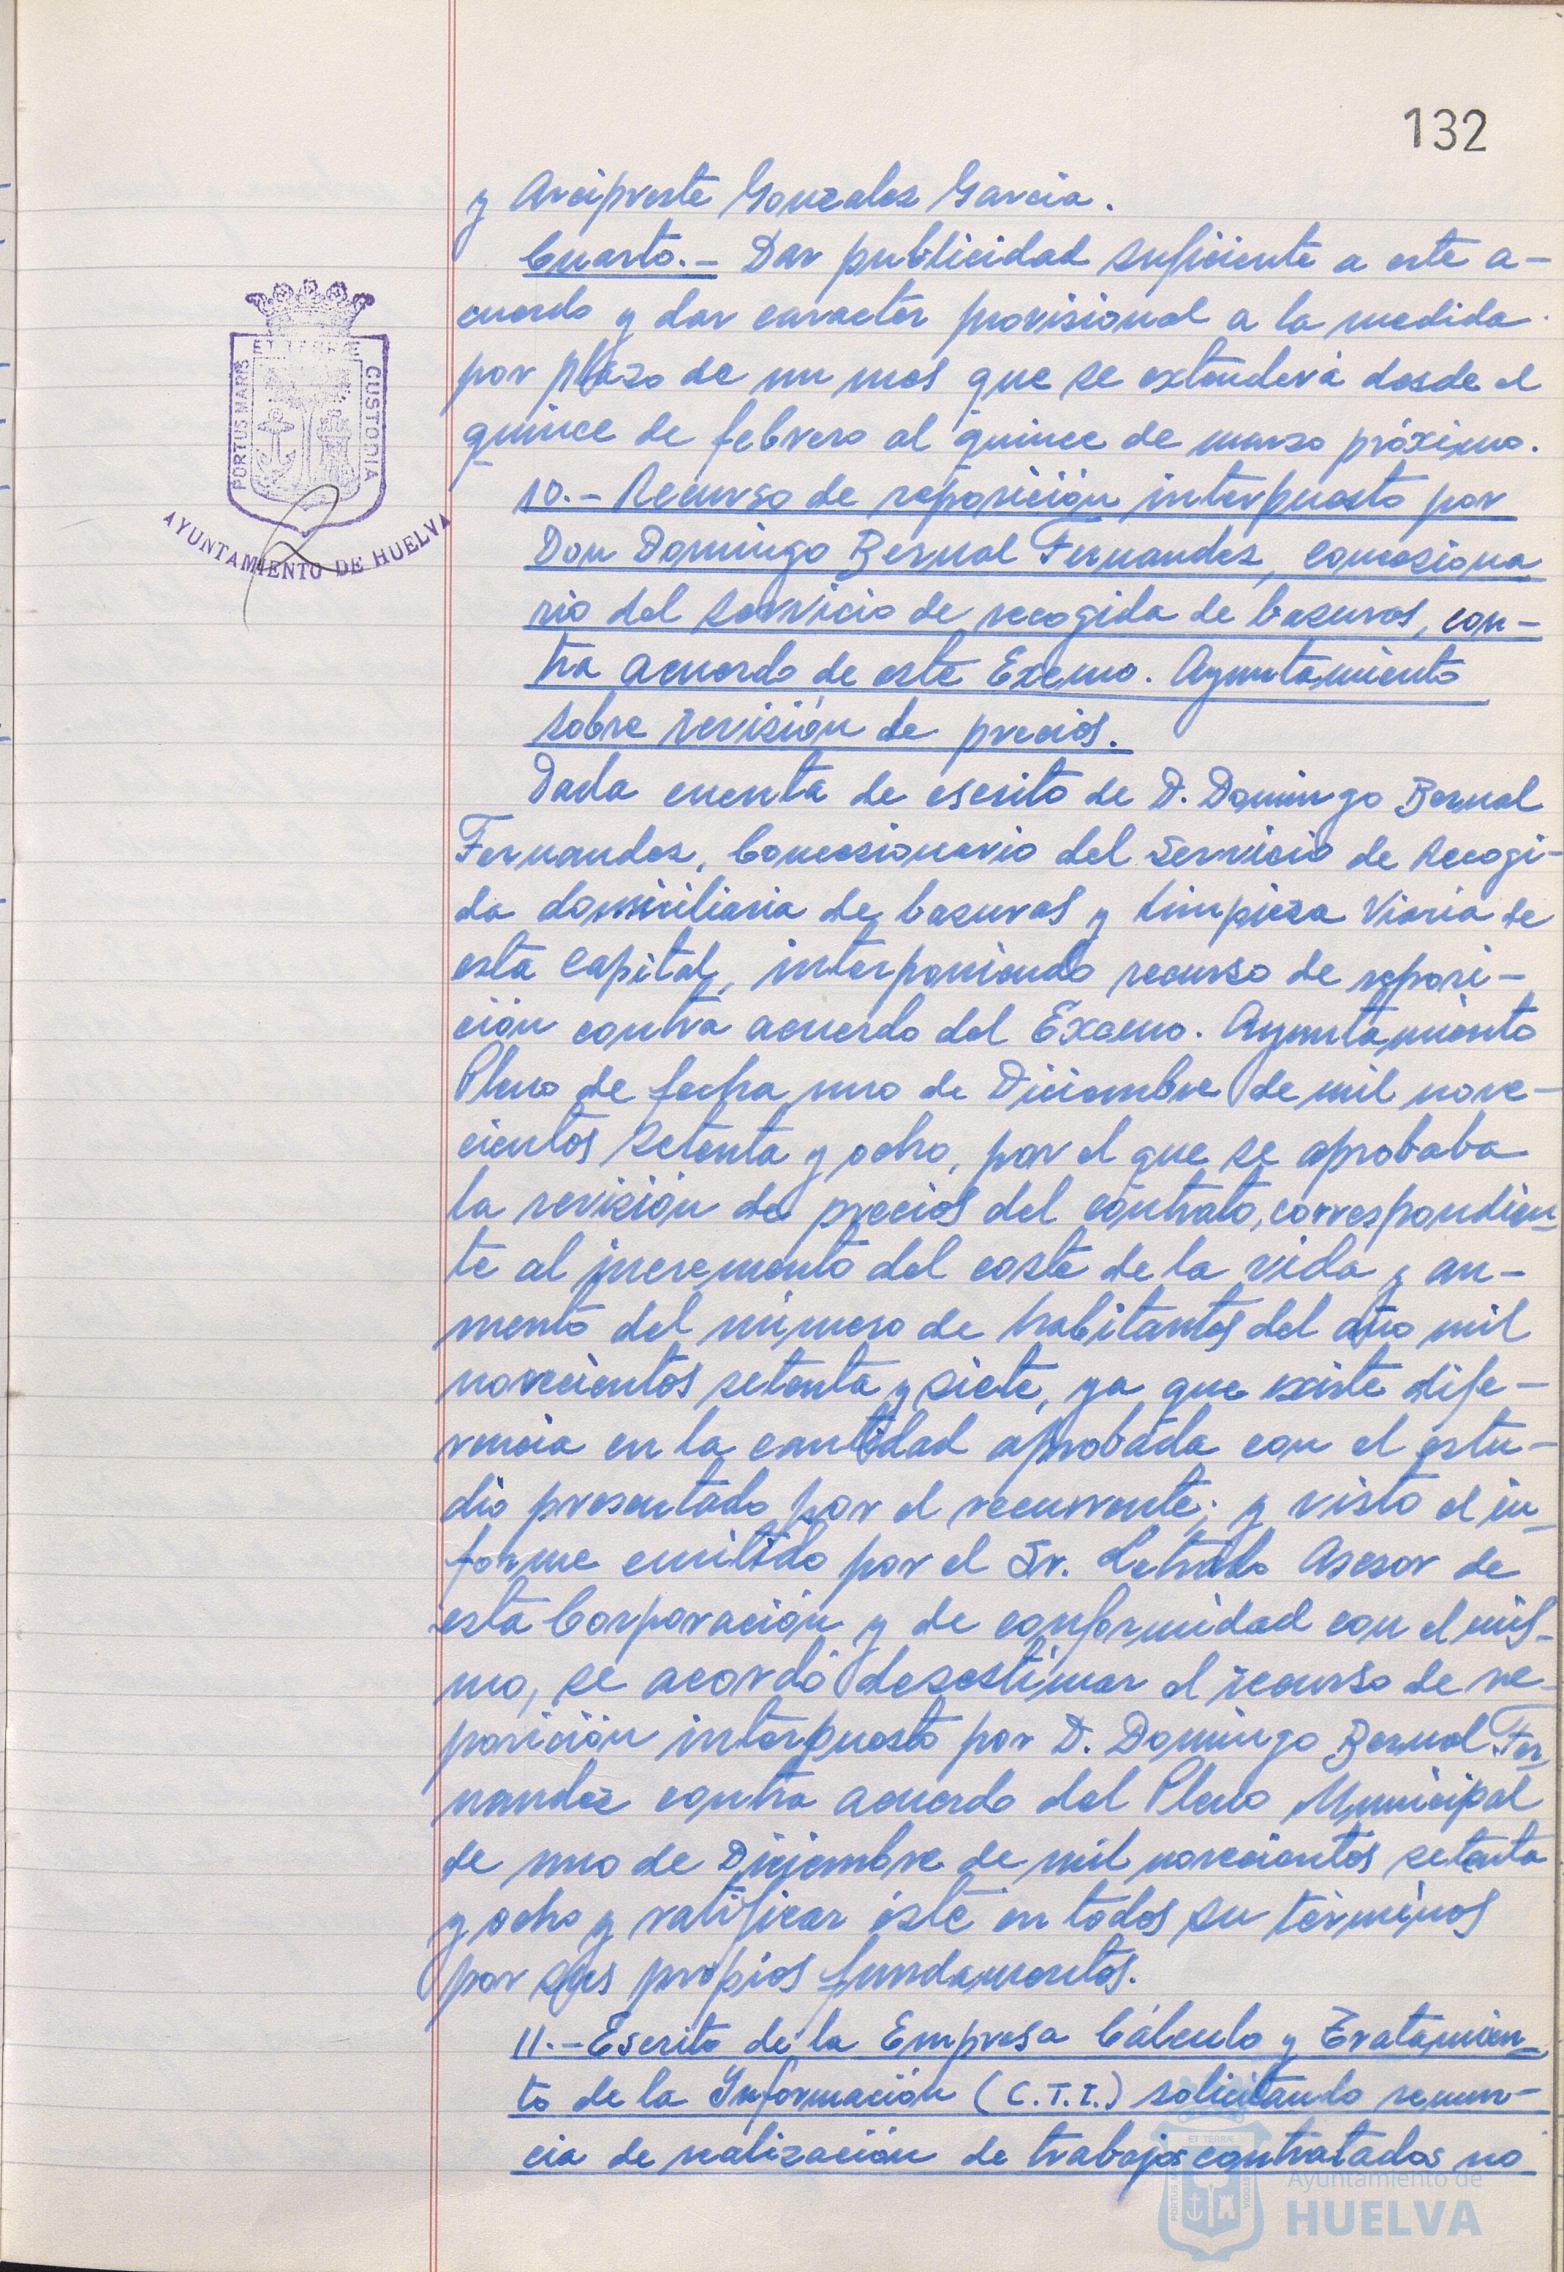 132
y Arcipreste Gonzalez Garcia.
Cuarto.- Dar publicidad suficiente a este a-
cuerdo y dar caracter provisional a la medida
por plazo de un mes que se extenderá desde el
quince de febrero al quince de marzo próximo.
10.- Recurso de reposición interpuesto por
Don Domingo Bernal Fernandez, Concesiona
rio del servicio de recogida de basuras, con-
tra acuerdo de este Excmo. Ayuntamiento
sobre revisión de precios.
Dada cuenta de escrito de D. Domingo Bernal
Fernandez, Concesionario del Servicio de Recogi-
da domiciliaria de basuras y Limpieza Viaria de
esta Capital, interponiendo recurso de reposi-
ción contra acuerdo del Excmo. Ayuntamiento
Pleno de fecha uno de Diciembre de mil nove-
cientos setenta y ocho, por el que se aprobaba
la revisión de precios del contrato, correspondien-
te al incremento del coste de la vida y au-
mento del número de habitantes del año mil
novecientos setenta y siete, ya que existe dife-
rencia en la cantidad aprobada con el estu-
dio presentado por el recurrente; y visto el in-
forme emitido por el Sr. Letrado Asesor de
esta Corporación y de conformidad con el mis-
mo, se acordó desestimar el recurso de re-
posición interpuesto por D. Domingo Bernal Fer
nandez contra acuerdo del Pleno Municipal
de uno de Diciembre de mil novecientos setenta
y ocho y ratificar éste en todos su términos
por sus propios fundamentos.
11.- Escrito de la Empresa Cálculo y Tratamien-
to de la Información (C.T.I.) solicitando renun-
cia de realización de trabajos contratados no
ET TERRÆ
PORTUS MARIS
CUSTODIA
AYUNTAMIENTO DE HUELVA
Ayuntamiento de
HUELVA